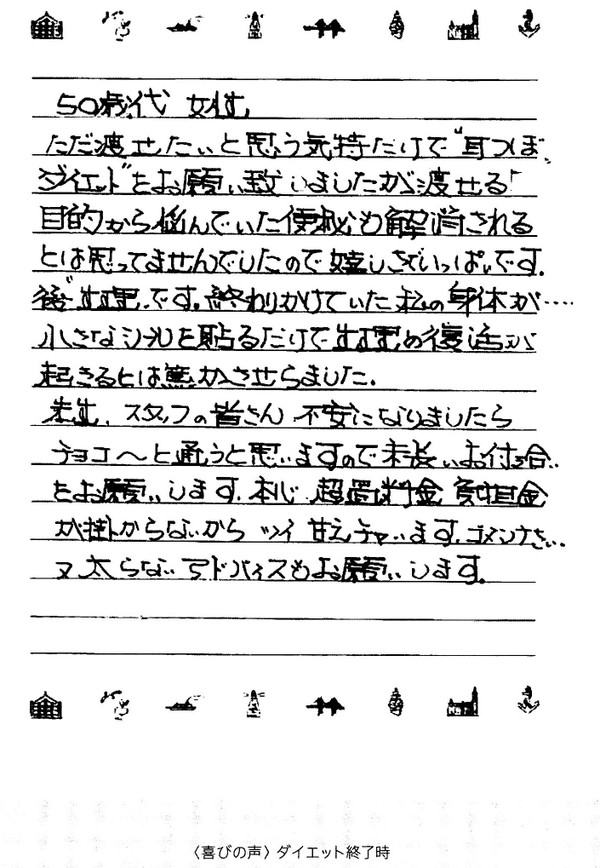 50歳代 女性
ただ渡せたいと思う気持だけで"耳つぼ
ダイエット"をお願い致しましたが渡せる「
目的から悩んでいた便秘も解消される
とは思ってませんでしたので嬉しさでいっぱいです.
後"生理"です.終わりかけていた私の身体が‥‥
小さなシールを貼るだけで生理の復活が
起きるとは驚かさせらました.
先生、スタッフの皆さん 不安になりましたら
チョコ〜と通うと思いますので末長いお付き合い
をお願いします.本心 超過料金 負担金
が掛からないから ツイ甘えチャいます.ゴメンナさい‥
又太らないアドバイスもお願いします.
〈喜びの声〉ダイエット終了時